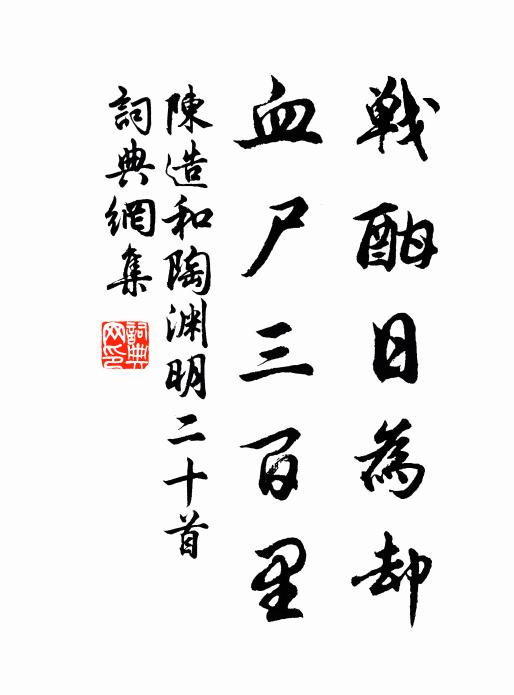 戦酣日為却
血尸三百里
陳造和陶渊明二十首
詞典網集
詞典網印